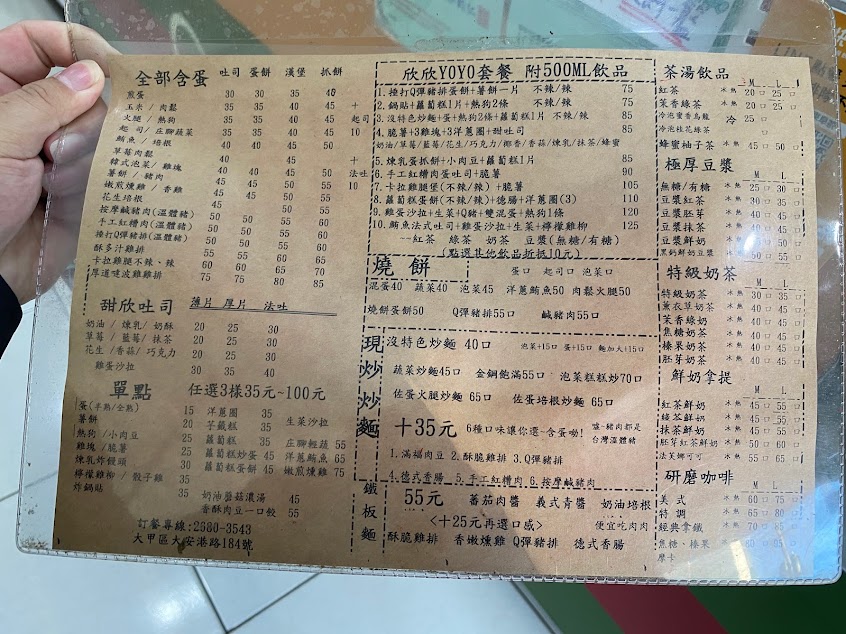 全部含蛋 吐司 蛋餅 漢堡 抓餅
煎蛋 30 30 35 40
玉米 / 肉鬆 35 35 40 45
火腿 / 熱狗 35 35 40 45
起司 / 庄腳蔬菜 35 35 40 45
鮪魚 / 培根 40 40 45 50
草莓肉鬆 40 45
韓式泡菜 / 雞塊 40 40 45 50
薯餅 / 豬肉 40 40 45 50
嫩煎燻雞 / 香雞 45 45 50 55
花生培根 45 50 55
按摩鹹豬肉(溫體豬) 50 50 55 60
手工紅糟肉(溫體豬) 50 50 55 60
捶打Q彈豬排(溫體豬) 50 50 55 60
酥多汁雞排 55 55 60 65
卡拉雞腿不辣、辣 60 60 65 70
厚道嗲波雞雞排 75 75 80 85
+
起司
10
+
法吐
10
甜欣吐司 薄片 厚片 法吐
奶油 / 煉乳 / 奶酥 20 25 30
草莓 / 藍莓 / 抹茶 20 25 30
花生 / 香蒜 / 巧克力 20 25 30
雞蛋沙拉 30 35 40
單點 任選3樣35元~100元
蛋(半熟/全熟) 15 洋蔥圈 35
薯餅 20 芋籤糕 35 生菜沙拉
熱狗 / 小肉豆 20 蘿蔔糕 35 庄腳輕蔬 55
雞塊 / 脆薯 25 蘿蔔糕炒蛋 45 洋蔥鮪魚 65
煉乳炸饅頭 30 蘿蔔糕蛋餅 45 嫩煎燻雞 75
檸檬雞柳 / 骰子雞 35
炸鍋貼 35
奶油蘑菇濃湯 45
香酥肉豆一口餃 55
訂餐專線:2680-3543
大甲區大安港路184號
欣欣YOYO套餐 附500ML飲品
1.捶打Q彈豬排蛋餅+薯餅一片 不辣/辣 75
2.鍋貼+蘿蔔糕1片+熱狗2條 不辣/辣 75
3.沒特色炒麵+蛋+熱狗2條+蘿蔔糕1片 不辣/辣 85
4.脆薯+3雞塊+3洋蔥圈+甜吐司 85
奶油/草莓/藍莓/花生/巧克力/椰香/香蒜/煉乳/抹茶/蜂蜜
5.煉乳蛋抓餅+小肉豆+蘿蔔糕1片 85
6.手工紅糟肉蛋吐司+脆薯 90
7.卡拉雞腿堡(不辣/辣)+脆薯 105
8.蘿蔔糕蛋餅(不辣/辣)+德腸+洋蔥圈(3) 110
9.雞蛋沙拉+生菜+Q豬+雙混蛋+熱狗1條 120
10.鮪魚法式吐司+雞蛋沙拉+生菜+檸檬雞柳 125
--紅茶 綠茶 奶茶 豆漿(無糖/有糖)
(點選其他飲品折抵10元)
燒餅 蛋口 起司口 泡菜口
混蛋40 蔬菜40 泡菜45 洋蔥鮪魚50 肉鬆火腿50
燒餅蛋餅50 Q彈豬排55口 鹹豬肉55口
現炒炒麵
沒特色炒麵 40口 泡菜+15口 蛋+15口 麵加大+15口
蔬菜炒麵45口 金銅飽滿55口 泡菜糕糕炒70口
佐蛋火腿炒麵 65口 佐蛋培根炒麵 65口
+35元 6種口味讓你選~含蛋呦! 噓~豬肉都是
台灣溫體豬
1.滿福肉豆 2.酥脆雞排 3.Q彈豬排
4.德式香腸 5.手工紅糟肉 6.按摩鹹豬肉
鐵板麵
55元 蕃茄肉醬 義式青醬 奶油培根
<+25元再選口感> 便宜吃肉肉
酥脆雞排 香嫩燻雞 Q彈豬排 德式香腸
茶湯飲品 M L
紅茶 冰熱 20口 25口
茉香綠茶 冰熱 20口 25口
冷泡蜜香烏龍 冷 25口
冷泡桂花綠茶 口
蜂蜜柚子茶 冰熱 45口 50口
極厚豆漿 M L
無糖/有糖 冰熱 25口 30口
豆漿紅茶 冰熱
豆漿胚芽 冰熱 40口
豆漿抹茶 冰熱
豆漿鮮奶 冰熱
黑鈣鮮奶豆漿 冰熱
特級奶茶 M L
特級奶茶 冰熱
薰衣草奶茶 冰熱
茉香綠奶 冰熱
焦糖奶茶 冰熱
榛果奶茶 冰熱
胚芽奶茶 冰熱
鮮奶拿提 M L
紅茶鮮奶 冰熱 45口 55口
綠茶鮮奶 冰熱 45口 55口
抹茶鮮奶 冰熱
胚芽紅茶鮮奶 冰熱
法芙娜可可 冰熱 55口 65口
研磨咖啡 M L
美式 冰熱 60口 75口
特調 冰熱 65口 80口
經典拿鐵 冰熱 70口 85口
焦糖、榛果 冰熱
摩卡